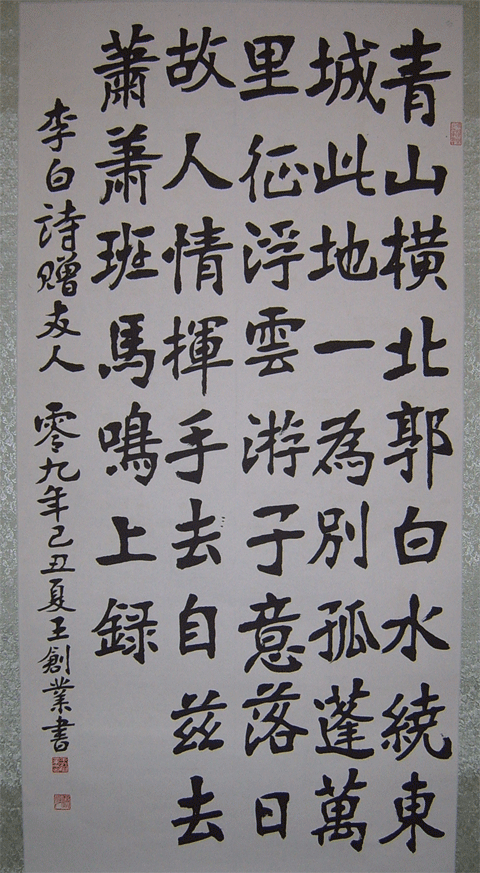 青山橫北郭白水繞東
城此地一為別孤蓬萬
里征浮雲游子意落日
故人情揮手去自兹去
蕭蕭班馬鳴上録
李白詩贈友人 零九年己丑夏王創業書